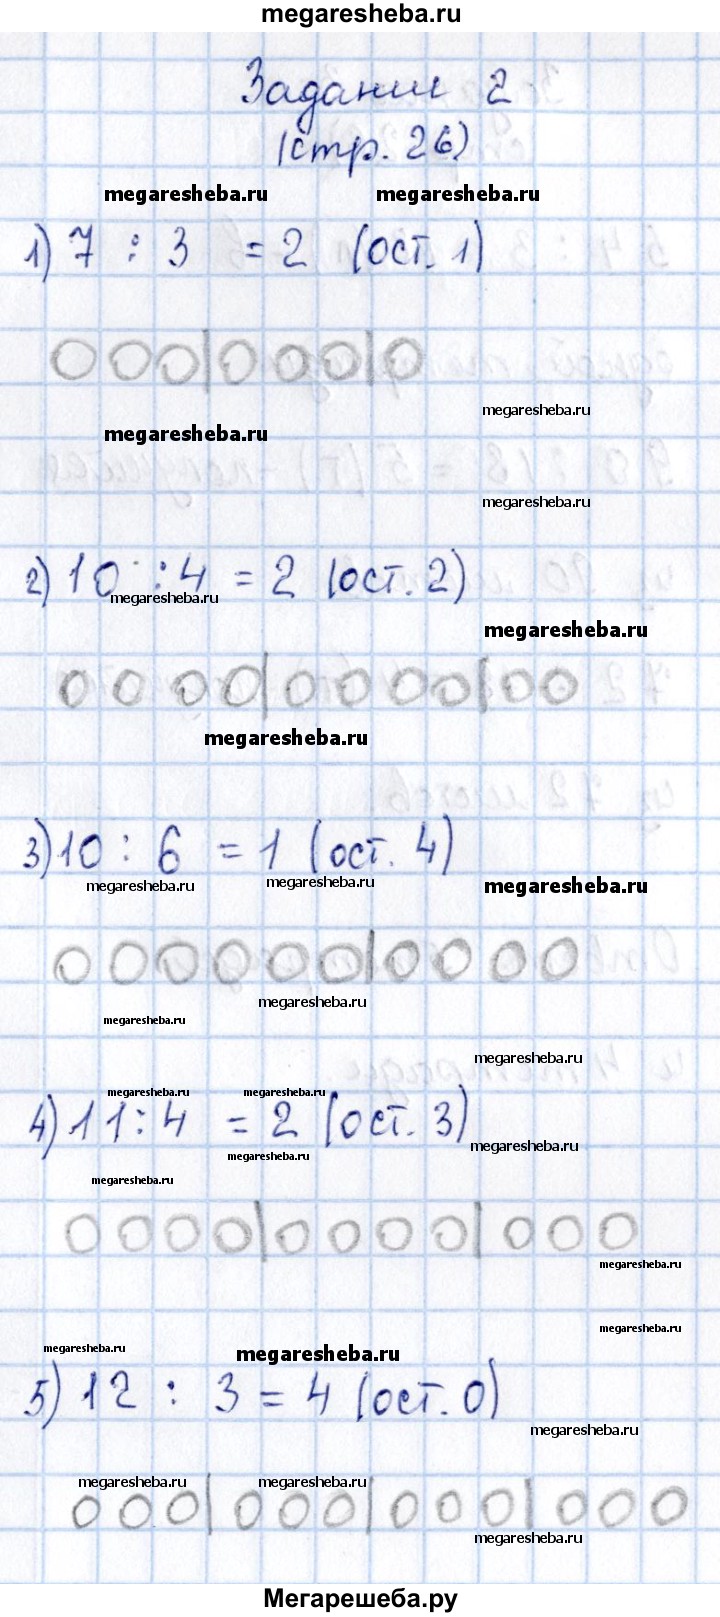 megaresheba.ru
Задание 2
(стр. 26)
megaresheba.ru megaresheba.ru
1) 7 : 3 = 2 (ост. 1)
megaresheba.ru
megaresheba.ru
megaresheba.ru
2) 10 : 4 = 2 (ост. 2)
megaresheba.ru
megaresheba.ru
megaresheba.ru
3) 10 : 6 = 1 (ост. 4)
megaresheba.ru megaresheba.ru megaresheba.ru
megaresheba.ru
megaresheba.ru
megaresheba.ru
megaresheba.ru megaresheba.ru
4) 11 : 4 = 2 (ост. 3)
megaresheba.ru
megaresheba.ru
megaresheba.ru
megaresheba.ru
megaresheba.ru
megaresheba.ru megaresheba.ru
5) 12 : 3 = 4 (ост. 0)
megaresheba.ru
megaresheba.ru megaresheba.ru
megaresheba.ru
Мегарешеба.ру